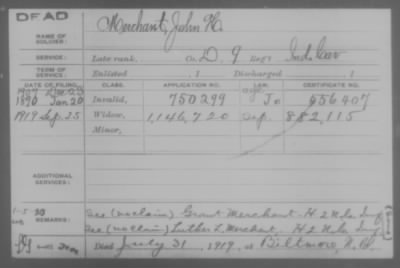 DEAD
NAME OF SOLDIER: Merchant, John H.
SERVICE: Late rank, Co. D, 9 Reg't Ind. Cav
TERM OF SERVICE: Enlisted , 1 Discharged , 1
DATE OF FILING. CLASS. APPLICATION NO. LAW. CERTIFICATE NO.
1890 Jan. 20 Invalid, 750299 J. 556407
1919 Sep. 25 Widow, 1,146,720 Sep. 882,115
Minor,
ADDITIONAL SERVICES:
REMARKS: See (no claim) Grant Merchant - H 2 N.C. Inf.
See (no claim) Luther L. Merchant. H 2 N.C. Inf
Died July 31, 1919, at Biltmore, N.C.